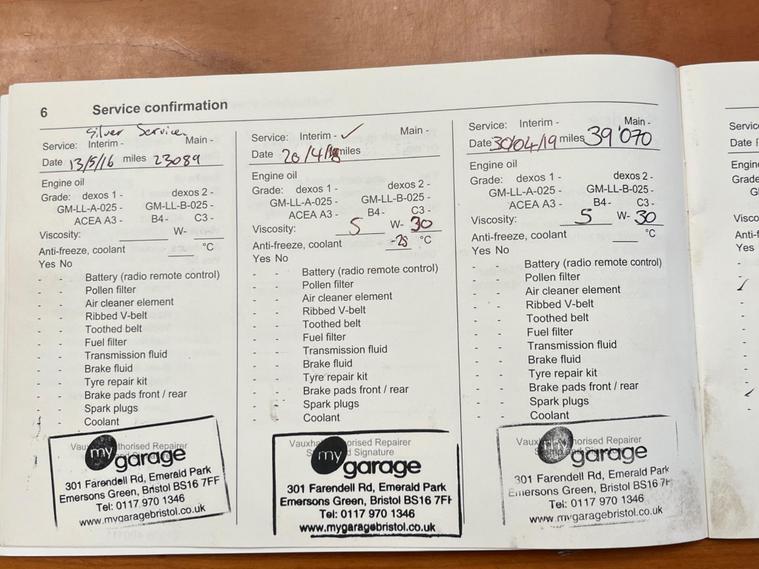 6 Service confirmation
Silver Service
Service: Interim - Main -
Date 13/5/16 miles 23089
Engine oil
Grade: dexos 1 - dexos 2 -
GM-LL-A-025 - GM-LL-B-025 -
ACEA A3 - B4- C3 -
Viscosity: W-
Anti-freeze, coolant °C
Yes No
- - Battery (radio remote control)
- - Pollen filter
- - Air cleaner element
- - Ribbed V-belt
- - Toothed belt
- - Fuel filter
- - Transmission fluid
- - Brake fluid
- - Tyre repair kit
- - Brake pads front / rear
- - Spark plugs
- - Coolant
my garage
301 Farendell Rd, Emerald Park
Emersons Green, Bristol BS16 7FF
Tel: 0117 970 1346
www.mygaragebristol.co.uk
Service: Interim - ✓ Main -
Date 20/4/18 miles
Engine oil
Grade: dexos 1 - dexos 2 -
GM-LL-A-025 - GM-LL-B-025 -
ACEA A3 - B4- C3 -
Viscosity: 5 W- 30
Anti-freeze, coolant -25 °C
Yes No
- - Battery (radio remote control)
- - Pollen filter
- - Air cleaner element
- - Ribbed V-belt
- - Toothed belt
- - Fuel filter
- - Transmission fluid
- - Brake fluid
- - Tyre repair kit
- - Brake pads front / rear
- - Spark plugs
- - Coolant
Signature
my garage
301 Farendell Rd, Emerald Park
Emersons Green, Bristol BS16 7FF
Tel: 0117 970 1346
www.mygaragebristol.co.uk
Service: Interim - Main -
Date 30/04/19 miles 39'070
Engine oil
Grade: dexos 1 - dexos 2 -
GM-LL-A-025 - GM-LL-B-025 -
ACEA A3 - B4- C3 -
Viscosity: 5 W- 30
Anti-freeze, coolant °C
Yes No
- - Battery (radio remote control)
- - Pollen filter
- - Air cleaner element
- - Ribbed V-belt
- - Toothed belt
- - Fuel filter
- - Transmission fluid
- - Brake fluid
- - Tyre repair kit
- - Brake pads front / rear
- - Spark plugs
- - Coolant
my garage
301 Farendell Rd, Emerald Park
Emersons Green, Bristol BS16 7F
Tel: 0117 970 1346
www.mygaragebristol.co.uk
Servic
Date
Engin
Grade
Visco
Anti-f
Yes